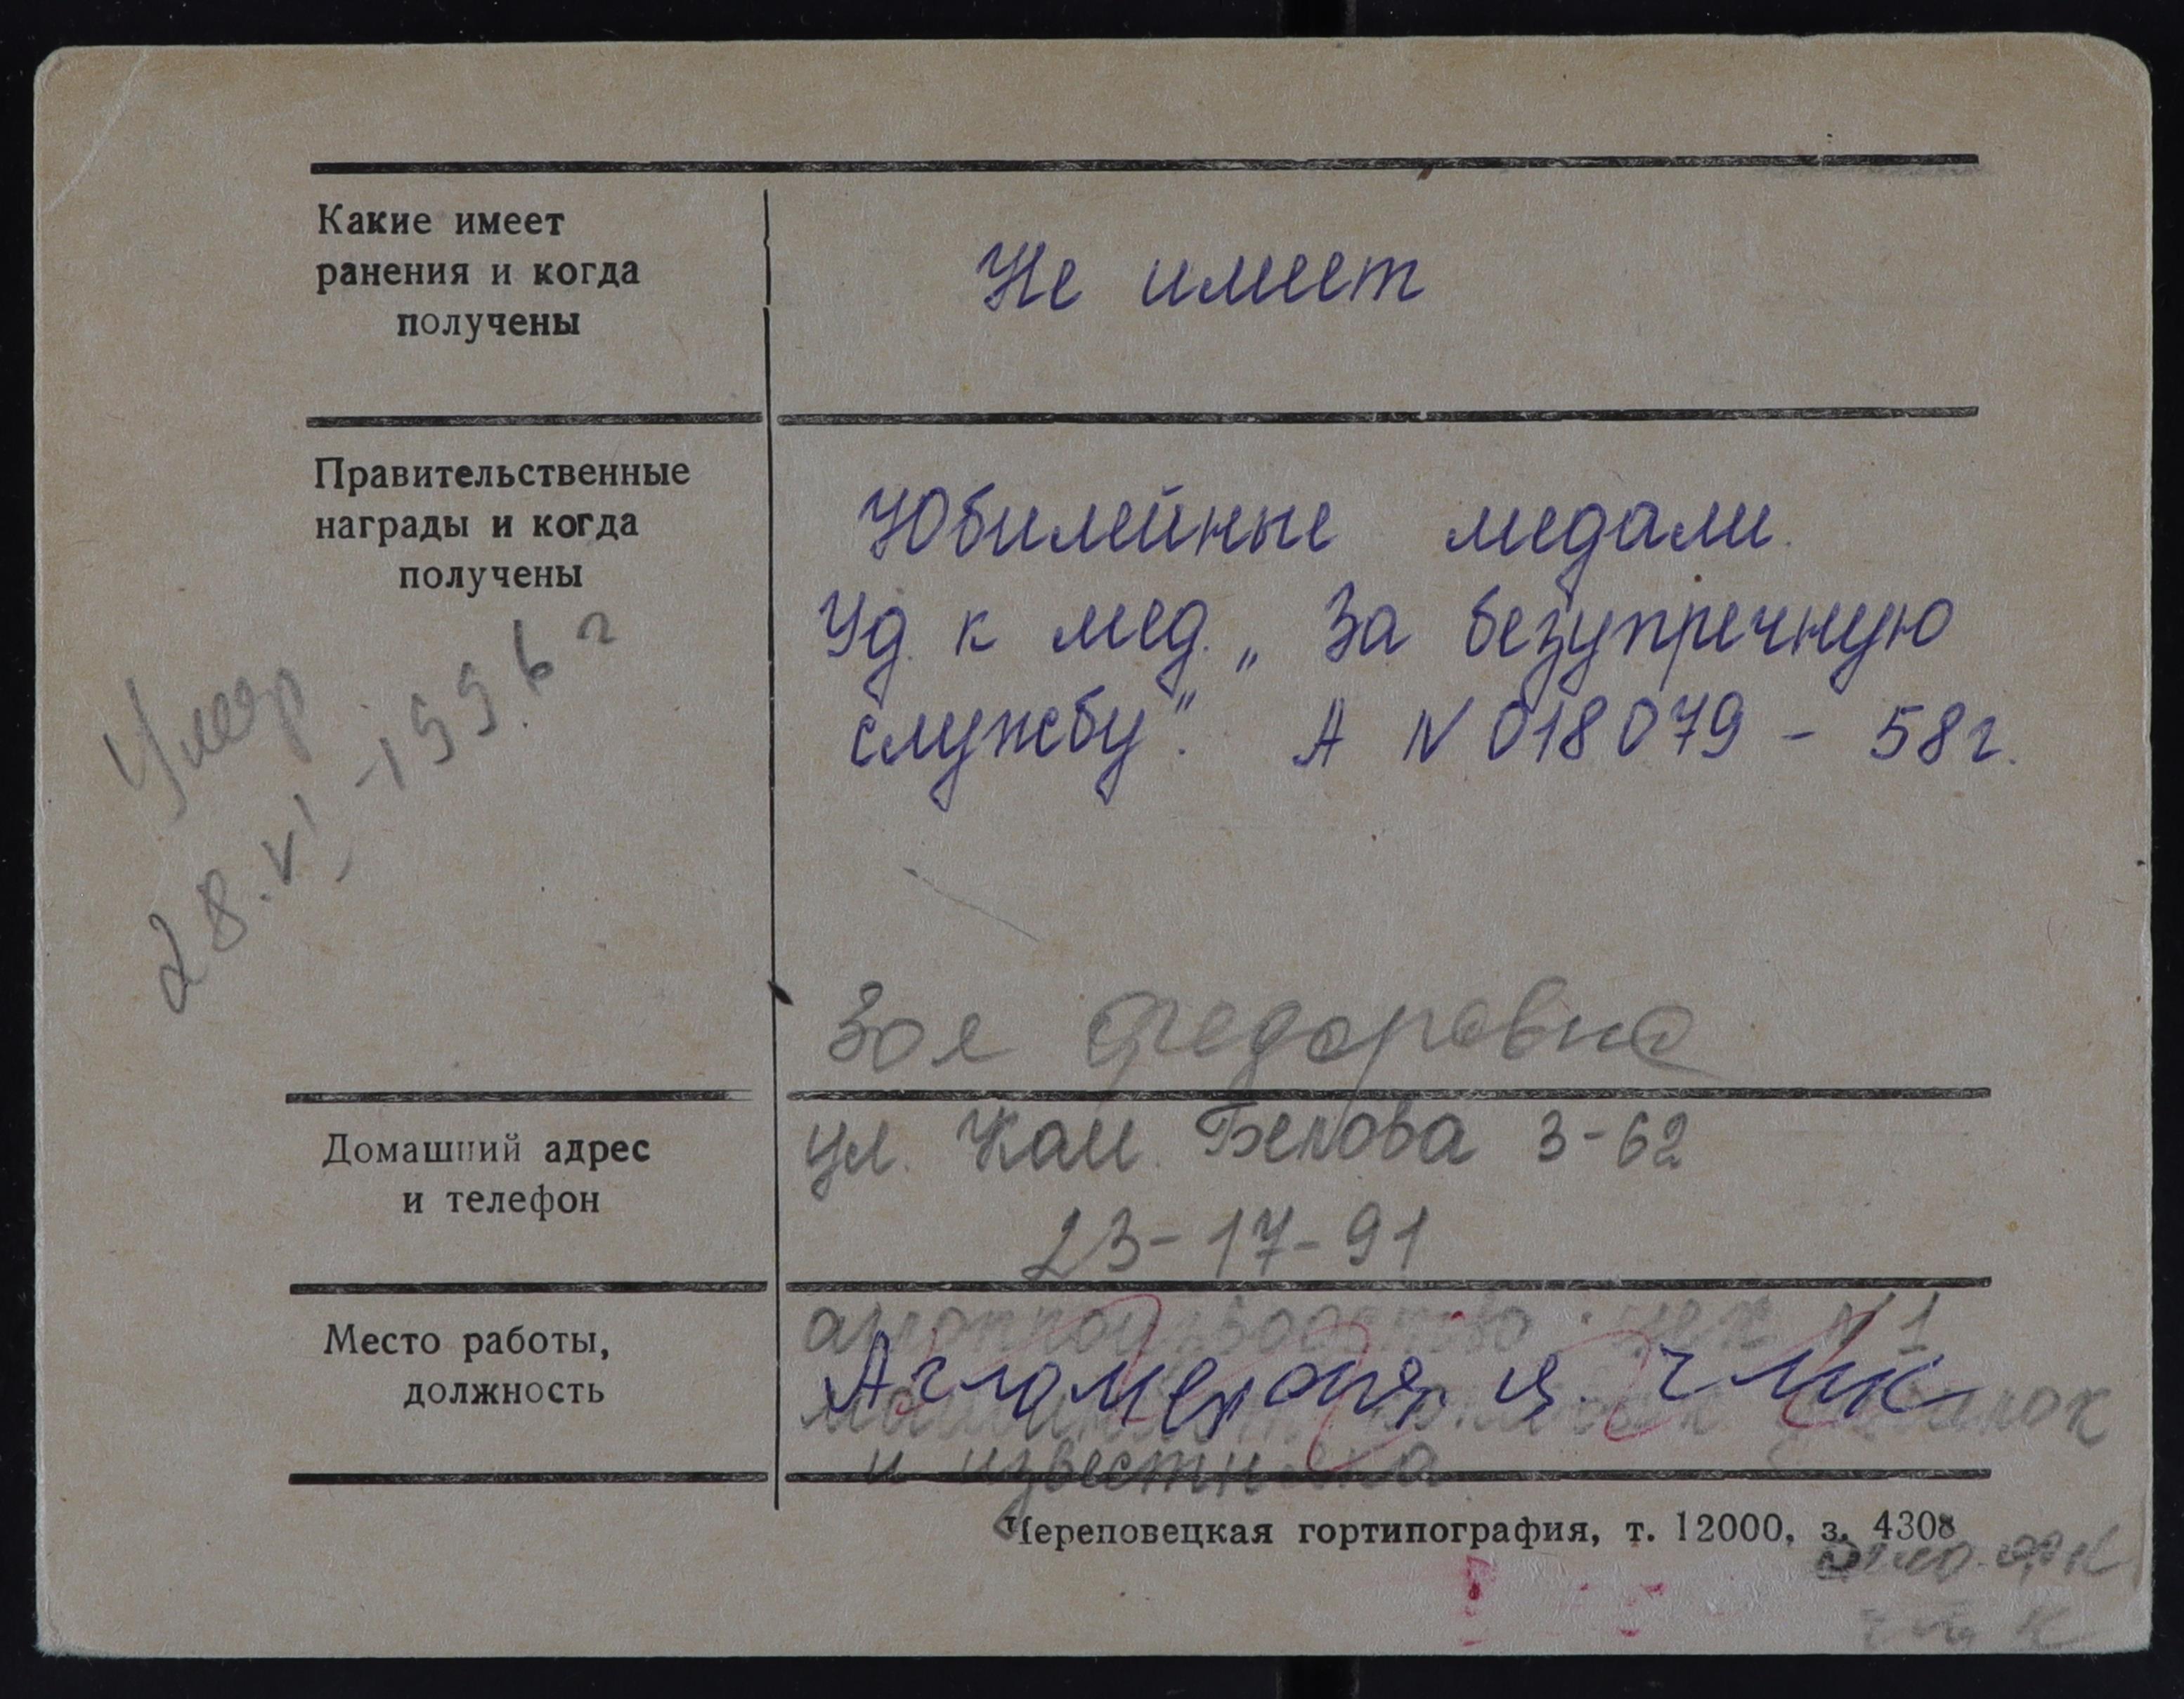 Какие имеет
ранения и когда
получены
Не имеет
Правительственные
награды и когда
получены
Юбилейные медали.
Уд. к мед. „За безупречную
службу". А N 018079 - 58г.
Умер
28.VI-1996 г
Зоя Федоровна
Домашний адрес
и телефон
ул. Кам. Белова 3-62
23-17-91
Место работы,
должность
аглопроизводство цех N 1
Агломерац. ц. ЧМК
и известняка
Череповецкая гортипография, т. 12000, з. 4308